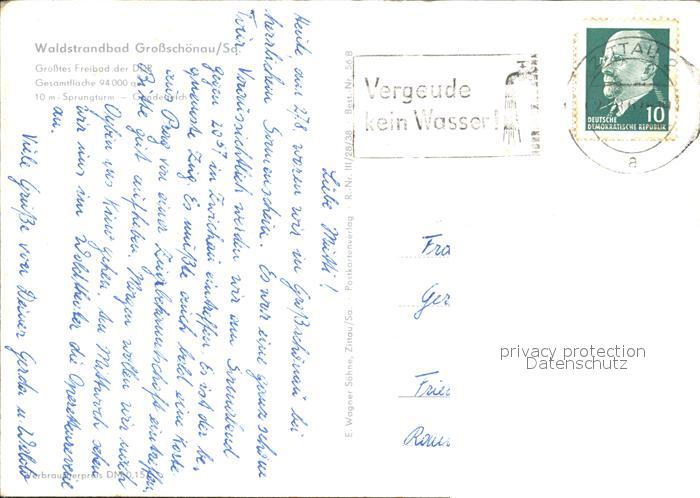 Waldstrandbad Großschönau/Sa.
Größtes Freibad der DDR
Gesamtfläche 94 000 qm
10 m - Sprungturm — Gondelteich
Liebe Mutti!
Heute, am 27.8. waren wir in Großschönau bei
herrlichem Sonnenschein. Es war eine ganz schöne
Tour. Voraussichtlich werden wir am Sonnabend
gegen 20 57 in Zwickau eintreffen. Es ist der be-
Zug. Es müßte auch bald eine Karte
aus Prag von einer eintreffen.
Bitte gut aufheben. Morgen wollen wir nach
Oybin ins Kino gehen. Am Mittwoch sehen
wir uns im Waldtheater die
an.
Viele Grüße von Deiner Gerda u.
Verbraucherpreis DM 0,15
E. Wagner Söhne, Zittau/Sa. Postkartenverlag R.-Nr. III/28/38 Best.-Nr. 56 B
Vergeude
kein Wasser!
ZITTAU
a
10
DEUTSCHE
DEMOKRATISCHE REPUBLIK
Fra
Ger
Fried
privacy protection
Datenschutz